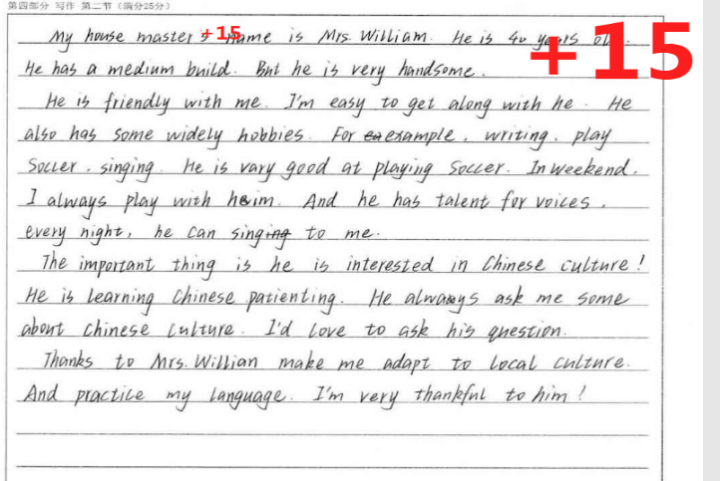 第四部分 写作 第二节（满分25分）
+15
+15
My house master's name is Mrs. William. He is 40 years old.
He has a medium build. But he is very handsome.
He is friendly with me. I'm easy to get along with he. He
also has some widely hobbies. For example, writing, play
soccer, singing. He is vary good at playing soccer. In weekend,
I always play with him. And he has talent for voices,
every night, he can sing to me.
The important thing is he is interested in Chinese culture!
He is learning Chinese patienting. He always ask me some
about Chinese culture. I'd love to ask his question.
Thanks to Mrs. Willian make me adapt to local culture.
And practice my language. I'm very thankful to him!